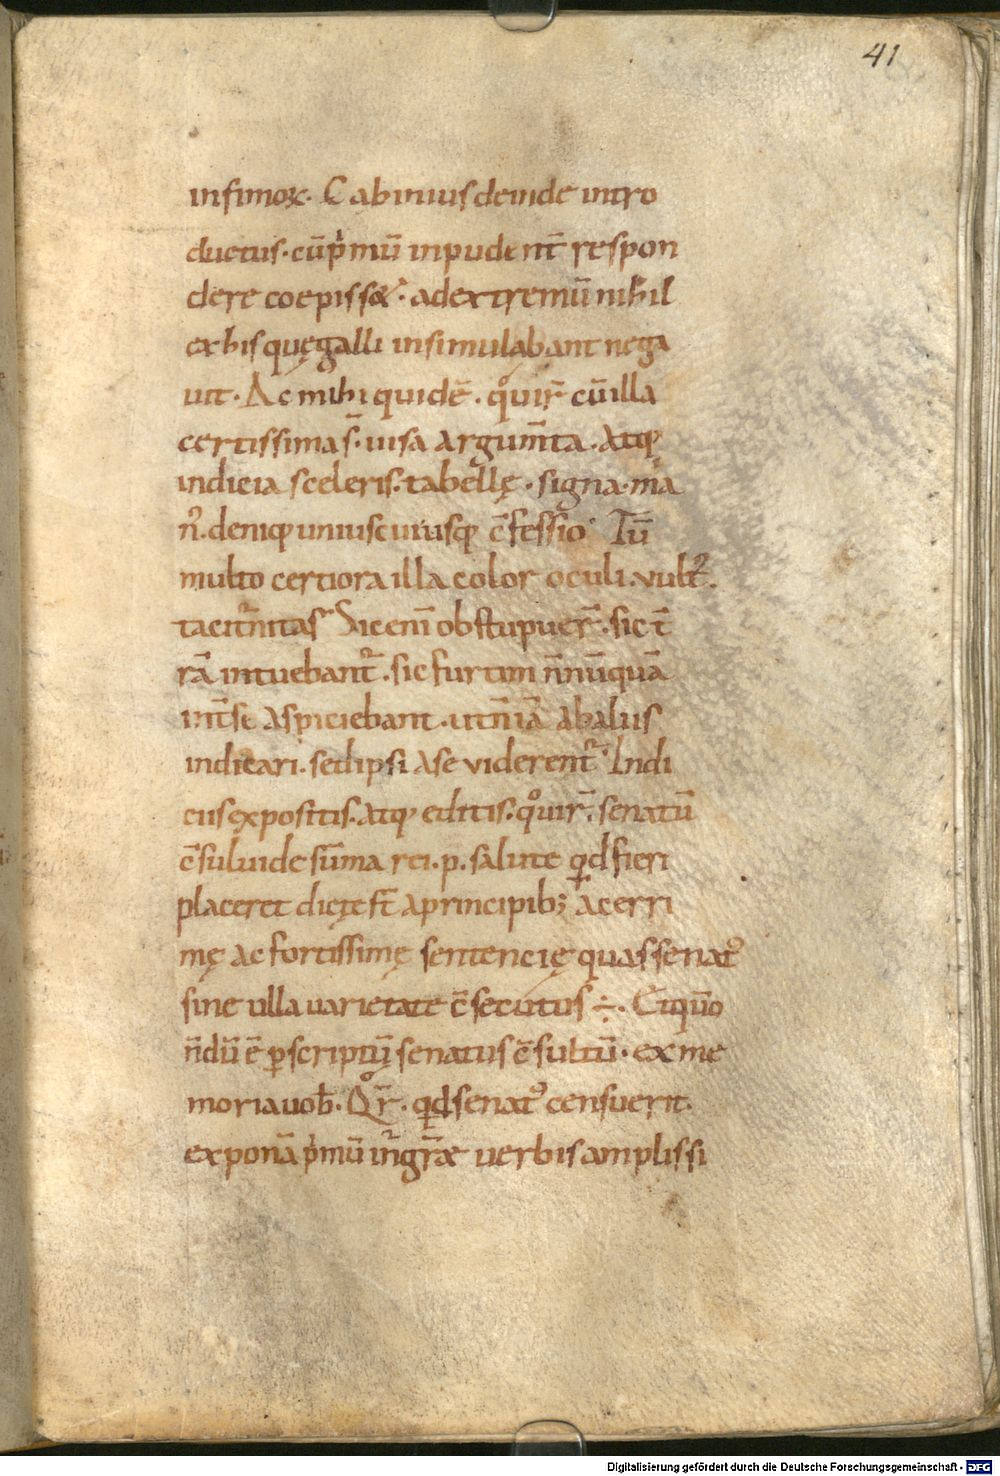 41
infimoꝝ. Cabinius deinde intro
ductus. cū p̍mū inpudent̄ respon
dere coepisset. ad extremū nihil
ex his quę galli insimulabant nega
uit. Ac mihi quidē. qͦuir̄ cū illa
certissima s̄. uisa argum̄ta. atq;
indicia sceleris. tabellę. signa. ma
n᷒. deniq; uniuscuiusq; c̄fessio. Tū
multo certiora illa color oculi. vult᷒.
taciturnitas Sic eni obstupuer̄. sic t̄
rā intuebant᷑. sic furtim n̄nūquā
int̄ se aspiciebant. ut n̄ iā ab aliis
indicari. sed ipsi a se viderent᷑. Indi
ciis expositis. atq; editis. qͦuir̄. senatū
c̄sului de sūma rei. p. salute qd fieri
placeret dictę st̄ a principib; acerri
mę ac fortissimę sentencię quas senat᷒
sine ulla uarietate c̄secutus ÷. Et qm̄o
n̄dū ē p̱scriptū senatus c̄sultū. ex me
moria uob̄. Qͦr̄. qd senat᷒ censuerit.
exponā p̍mū m̍ gr̄æ verbis amplissi
Digitalisierung gefördert durch die Deutsche Forschungsgemeinschaft - DFG